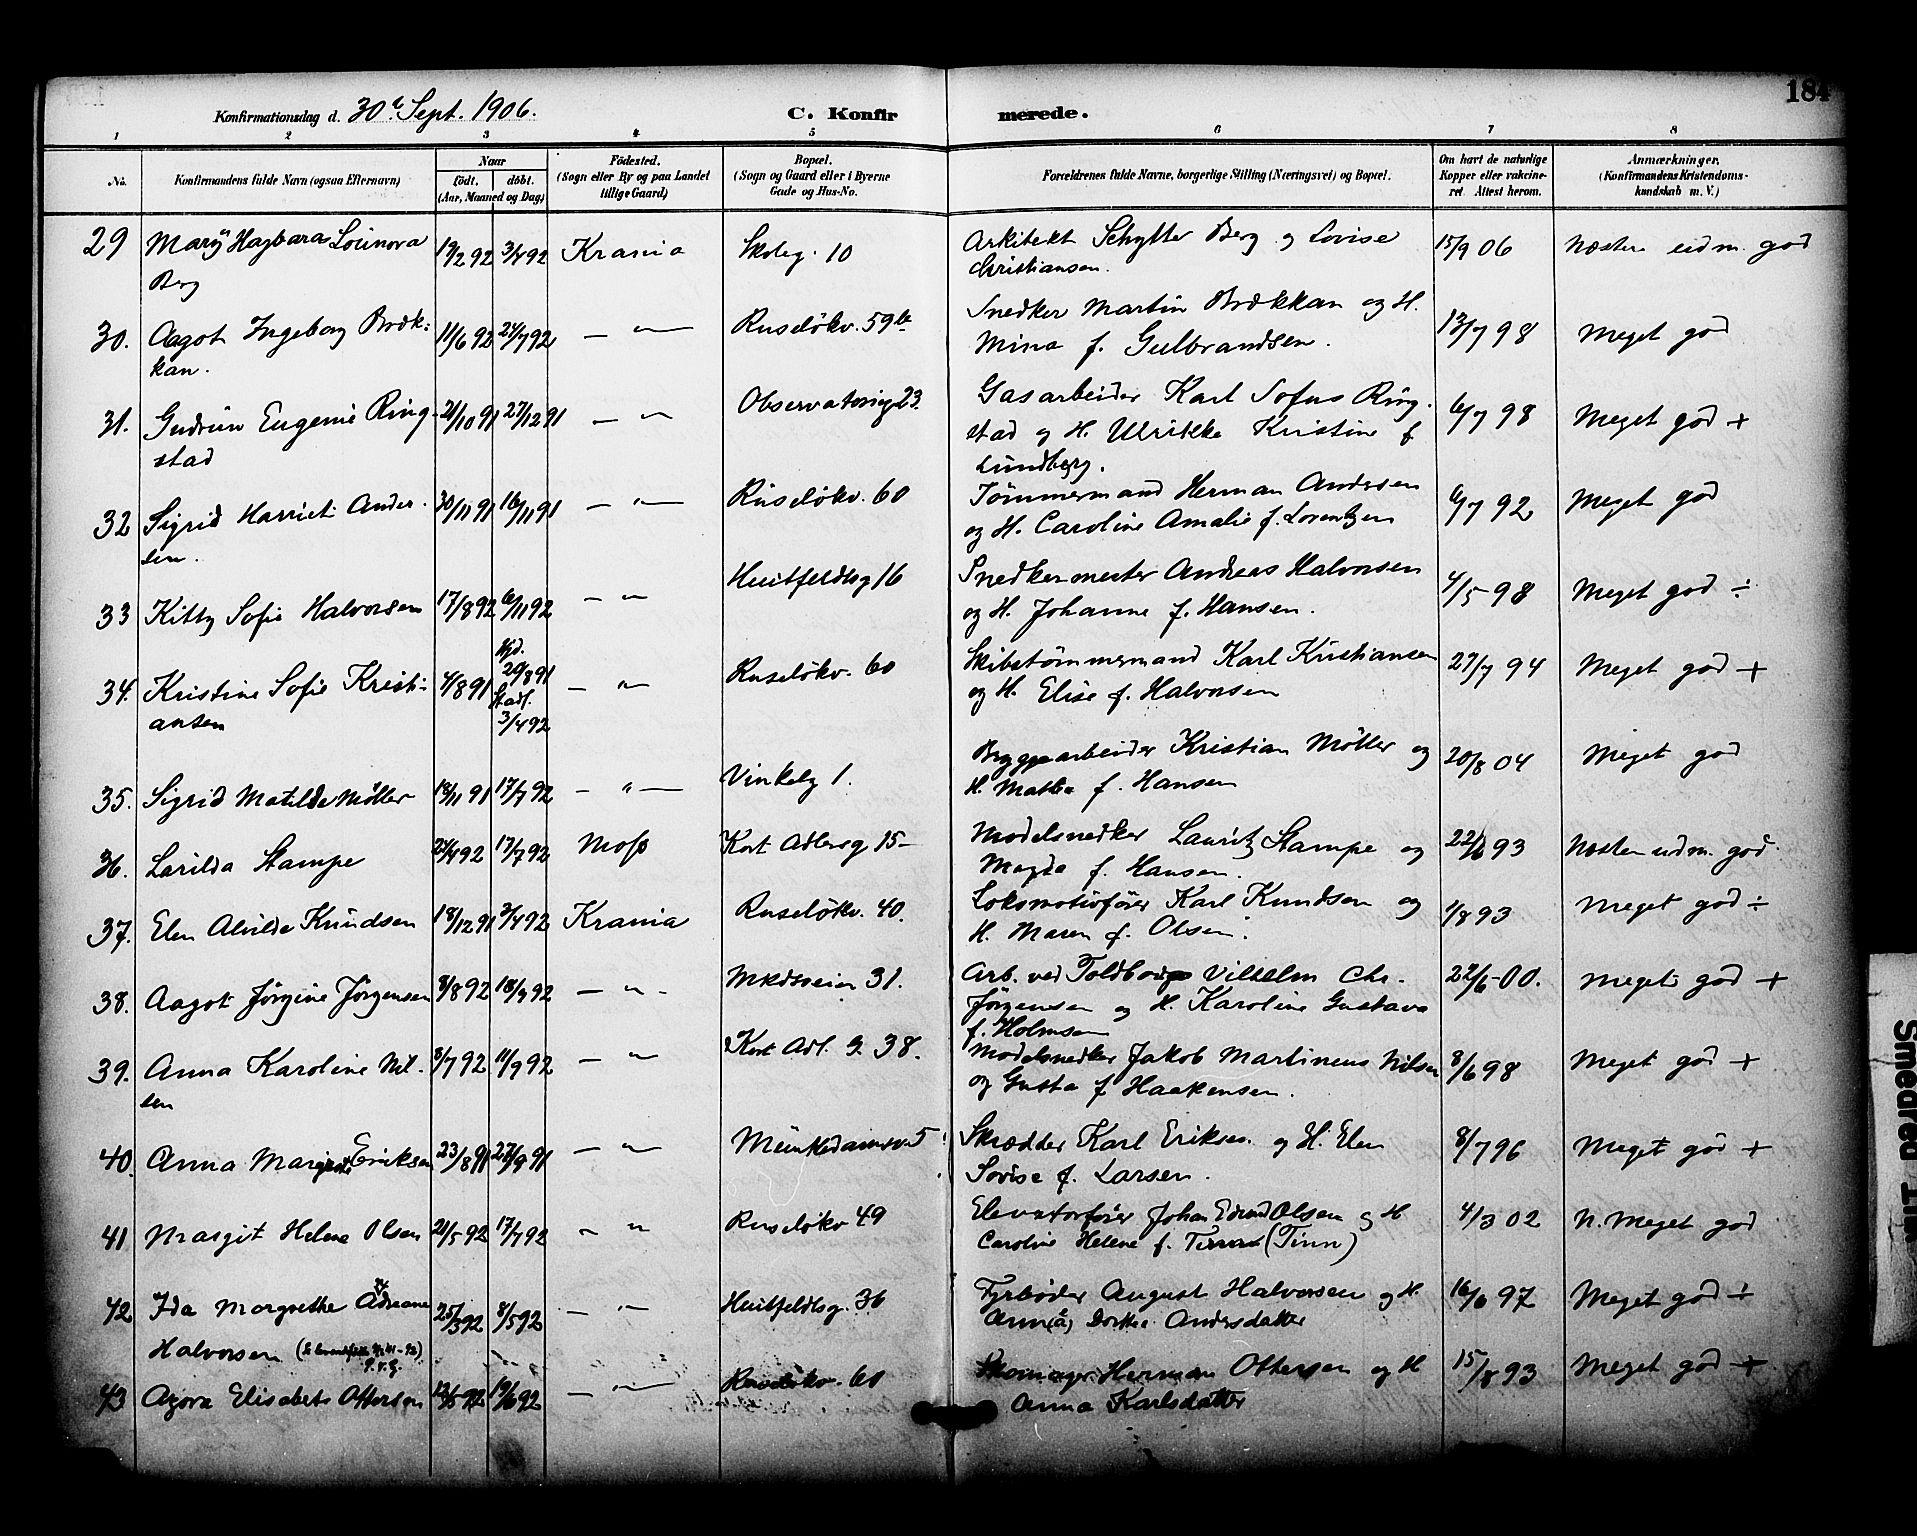 184
Konfirmationsdag d. 30te Sept. 1906. C. Konfirmerede.
1 2 3 4 5 6 7 8
No. Konfirmandens fulde Navn (ogsaa Efternavn) Naar födt. döbt. (Aar, Maaned og Dag) Födested. (Sogn eller By og paa Landet tillige Gaard) Bopæl. (Sogn og Gaard eller i Byerne Gade og Hus-No. Forældrenes fulde Navne, borgerlige Stilling (Næringsvei) og Bopæl. Om havt de naturlige Kopper eller vakcineret. Attest herom. Anmærkninger. (Konfirmandens Kristendomskundskab m. V.)
29 Mary Hagbara Berg 19/2 92 3/4 92 Krania Skoleg. 10 Arkitekt Schytter Berg og Lovise Christiansen. 15/9 06 Næsten udm. god
30. Aagot Ingeborg Brækkan. 11/6 92 24/7 92 — " — Ruseløkv. 59 Snedker Martin Brækkan og H. Mina f. Gulbrandsen. 13/7 98 Meget god
31. Gudrun Eugenie Ringstad 21/10 91 27/12 91 — " Observatorieg 23. Gasarbeider Karl Sofus Ringstad og H. Ulrikke Kristine f Lundberg. 6/7 98 Meget god +
32 Sigrid Harriet Andersen. 16/11 91 — " — Ruseløkv. 60 Tømmermand Herman Andersen og H. Caroline Amalie f. Lorentzen 6/7 92 Meget god
33 Kitty Sofie Halvorsen 17/8 92 6/11 92 — " Huitfeldtsg 16 Snedkermester Andreas Halvorsen og H. Johanne f. Hansen. 4/5 98 Meget god ÷
34. Kristine Sofie Kristiansen 4/8 91 Hjd. 29/8 91 Stadf. 3/4 92 — " Ruseløkv. 60 Skibstømmermand Karl Kristiansen og H. Elise f. Halvorsen 27/7 94 Meget god +
35. Sigrid Matilde Møller 18/11 91 17/7 92 — " — Vinkelg 1. Bryggearbeider Kristian Møller og H. Mathea f. Hansen 20/8 04 Meget god
36. Larilda Stampe 17/7 92 Moss Kort Adlersg 15 Modelsnedker Lauritz Stampe og Magda f. Hansen. 93 Næsten udm. god.
37. Elen Alvilde Knudsen 18/12 91 3/4 92 Krania Ruseløkv. 40. Lokomotivfører Karl Knudsen og H. Maren f. Olsen. 1/8 93 Meget god ÷
38. Aagot Jørgine Jørgensen 8/8 92 18/9 92 — " - Mkdsveien 31. Arb. ved Toldbod Vilhelm Chr. Jørgensen og H. Karoline Gustava f. Holmsen 22/6 00. Meget god +
39. Anna Karoline Nilsen 8/7 92 11/9 92 — " Kort Adl. g. 38. Modelsnedker Jakob Martineus Nilsen og Gusta f Haakensen. 8/6 98 Meget god +
40. Anna Margrete Eriksen 23/8 91 27/9 91 — " Munkedamsv. 5 Skrædder Karl Eriksen og H. Elen Lovise f. Larsen. 8/7 96 Meget god +
41 Margit Helene Olsen 21/5 92 17/7 92 — " Ruseløkv 49 Elevatorfører Johan Edvard Olsen og H Caroline Helene f. (Tinn) 4/3 02 N. Meget god
42 Ida Margrethe Adreane Halvorsen 25/3 92 8/5 92 — " — Huitfeldtsg. 36 Fyrbøder August Halvorsen og H. Ann(a) Dorthea Andersdatter 16/6 97 Meget god ÷
43 Agora Elisabeth Ottersen 19/6 92 — " — Ruseløkv. 60 Skomager Herman Ottersen og H Anna Karlsdatter 15/8 93 Meget god +
Smedred I.M.